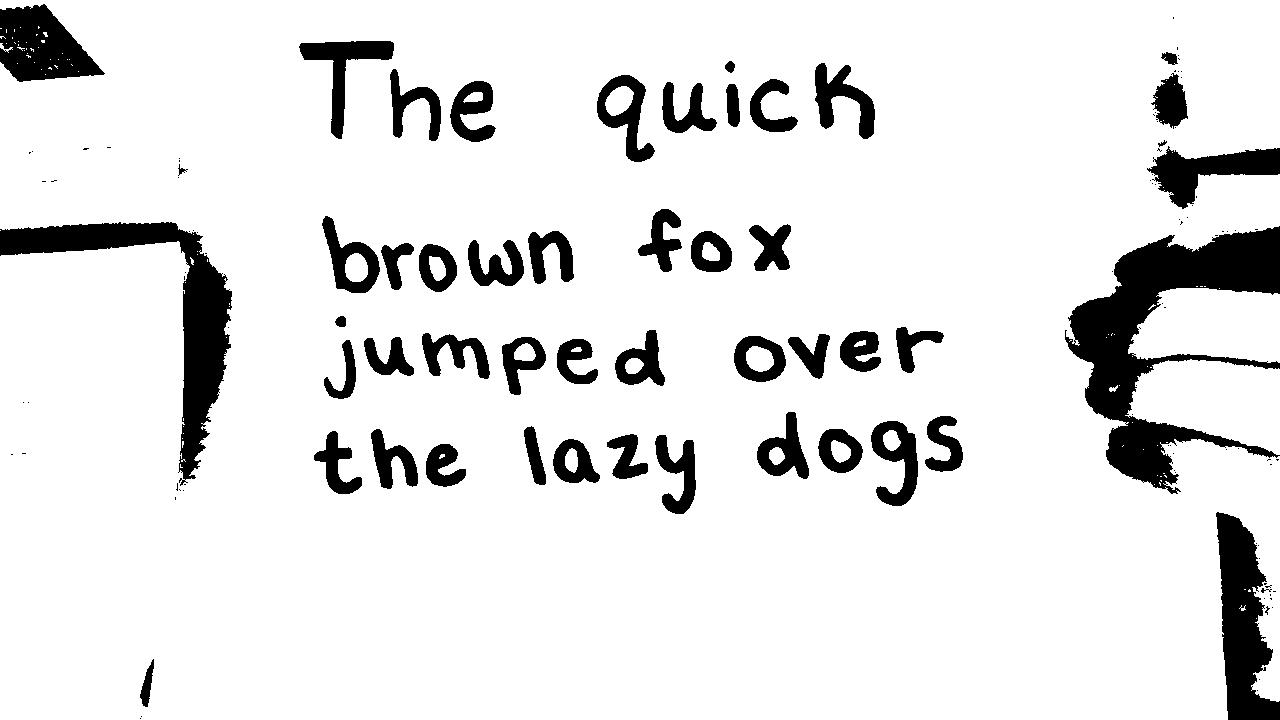 The quick
brown fox
jumped over
the lazy dogs